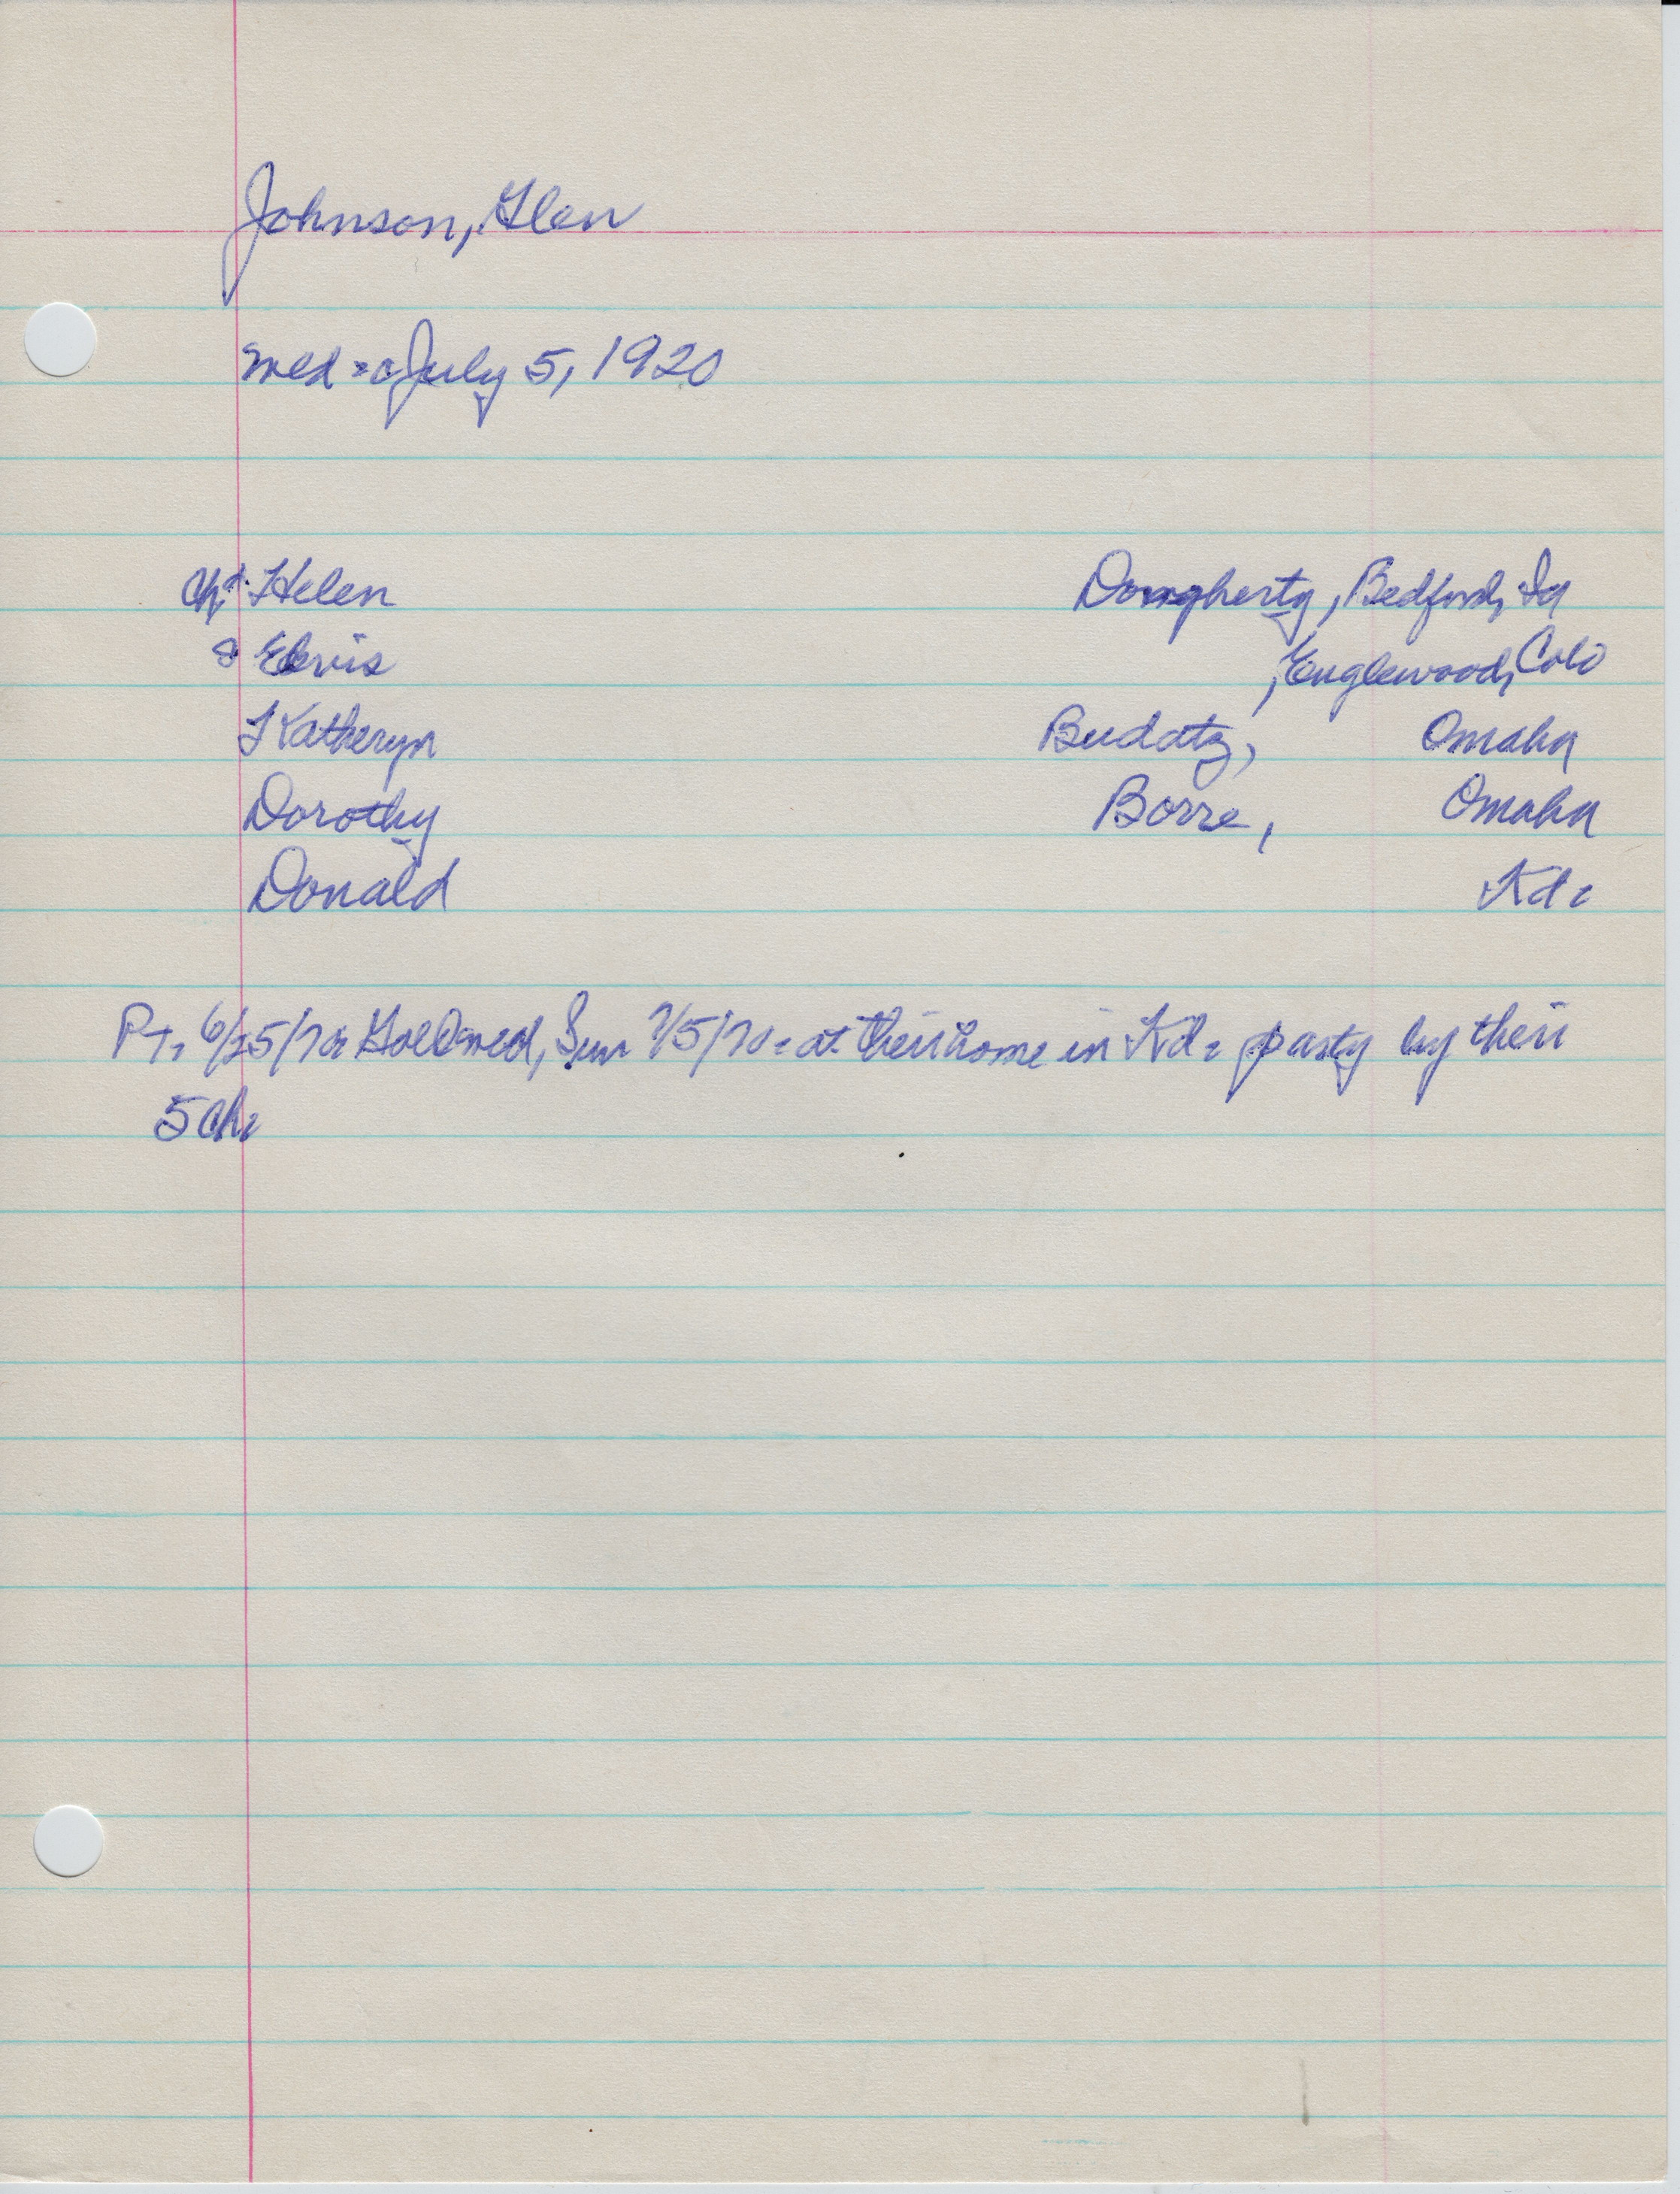 Johnson, Glen
wed. July 5, 1920
Ch. Helen Dougherty, Bedford, Ia
Elvis , Englewood, Colo
Katheryn Budatz, Omaha
Dorothy Borre, Omaha
Donald Kd.
P.T. 6/25/70 Gol wed, Sun 7/5/70. at their home in Kd. party by their
5 ch.